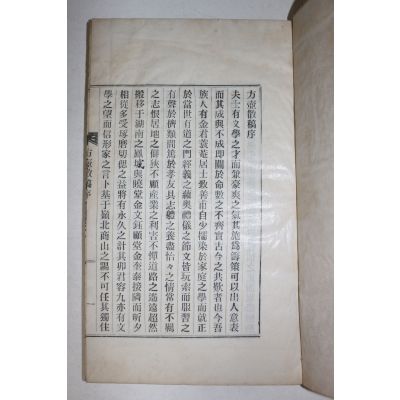 方壺散稿序
夫士有文學之才而兼豪爽之氣其施爲籌策可以出人意表
而其成與不成即關於命數之不齊實古今之共歎者也今吾
族人有金君蓑庵居士致善甫自少擩染於家庭之學而就正
於當世有道之門經義之蘊奧禮儀之節文皆玩索而服習之
有聲於儕類間篤於孝友具志體之養盡怡々之情常有不羈
之志恨居地之偪狹不顧産業之利害不憚道路之遙遠超然
搬移于湖南之鳳城與曉堂金文鈺顧堂金奎泰接隣而昕夕
相從多受琢磨切偲之益將有永久之計其卯君容九亦有文
學之望而信形家之言卜基于嶺北商山之陽不可任其獨住
方壺散稿序